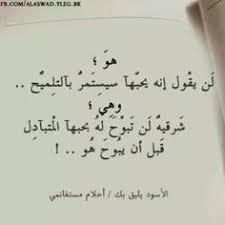 FB.COM/ALASWAD.YLEG.BK
هوَ ؛
لَن يقْول إنه يحبّهآ سيستَمرّ بآلتِلميّح ..
وهي ؛
شَرقيهٌ لَن تَبوْحَ لهُ بحبهآ المْتبآدِل
قَبل أن يبُوحَ هُو .. !
الأسود يليق بك / أحلام مستغانمي